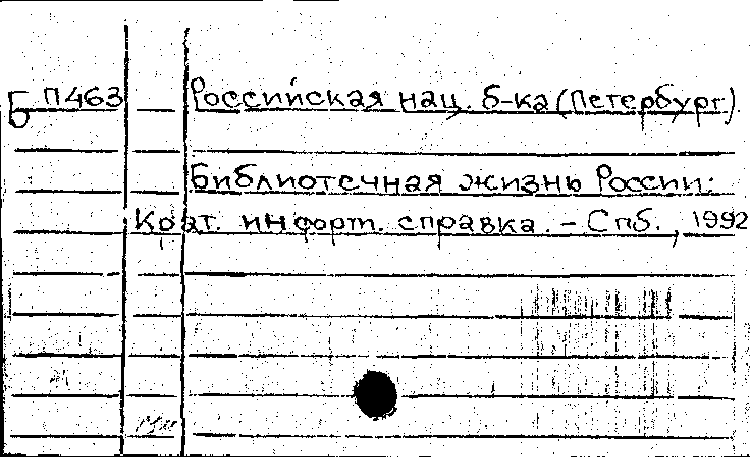 Б П463 Российская нац. б-ка (Петербург)
Библиотечная жизнь России:
Крат. информ. справка. - Спб., 1992